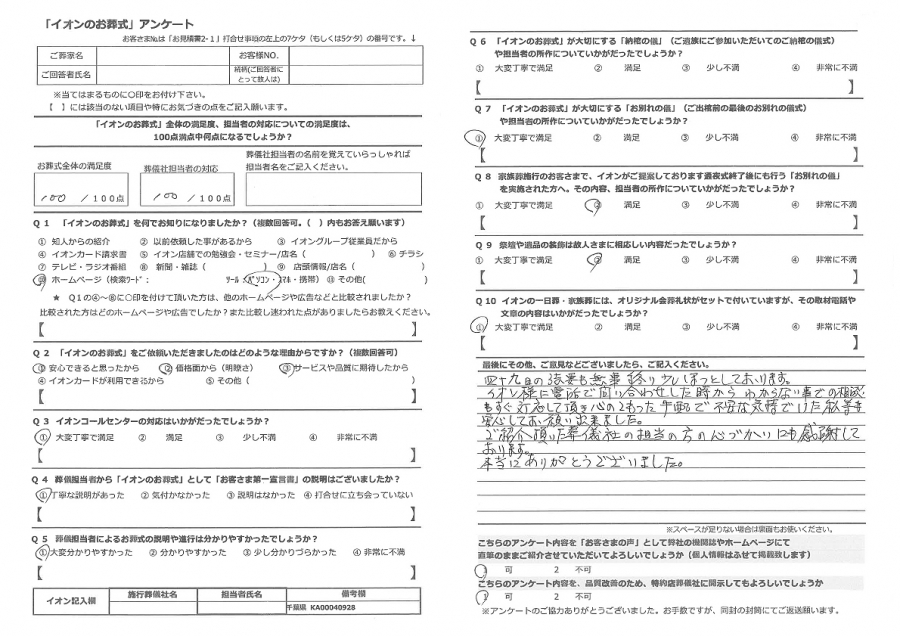 「イオンのお葬式」アンケート
お客さま№は「お見積書2-1」打合せ事項の左上の7ケタ（もしくは5ケタ）の番号です。↓
ご葬家名 お客様NO.
ご回答者氏名 続柄(ご回答者にとって故人は)
※当てはまるものに○印をお付け下さい。
【　】には該当のない項目や特にお気づきの点をご記入願います。
「イオンのお葬式」全体の満足度、担当者の対応についての満足度は、
100点満点中何点になるでしょうか？
お葬式全体の満足度 葬儀社担当者の対応
葬儀社担当者の名前を覚えていらっしゃれば
担当者名をご記入ください。
100 /100点 100 /100点
Q1 「イオンのお葬式」を何でお知りになりましたか？（複数回答可。( )内もお答え願います）
① 知人からの紹介 ② 以前依頼した事があるから ③ イオングループ従業員だから
④ イオンカード請求書 ⑤ イオン店舗での勉強会・セミナー/店名( ) ⑥ チラシ
⑦ テレビ・ラジオ番組 ⑧ 新聞・雑誌( ) ⑨ 店頭情報/店名( )
⑩ ホームページ（検索ﾜｰﾄﾞ： ﾂｰﾙ：パソコン・ｽﾏﾎ・携帯） ⑪ その他( )
★ Q1の④～⑩に○印を付けて頂いた方は、他のホームページや広告などと比較されましたか？
比較された方はどのホームページや広告でしたか？また比較し迷われた点がありましたらお教えください。
【 】
Q2 「イオンのお葬式」をご依頼いただきましたのはどのような理由からですか？（複数回答可）
① 安心できると思ったから ② 価格面から（明瞭さ） ③ サービスや品質に期待したから
④ イオンカードが利用できるから ⑤ その他（ ）
【 】
Q3 イオンコールセンターの対応はいかがだったでしょうか？
① 大変丁寧で満足 ② 満足 ③ 少し不満 ④ 非常に不満
【 】
Q4 葬儀担当者から「イオンのお葬式」として「お客さま第一宣言書」の説明はございましたか？
① 丁寧な説明があった ② 気付かなかった ③ 説明はなかった ④ 打合せに立ち会っていない
【 】
Q5 葬儀担当者によるお葬式の説明や進行は分かりやすかったでしょうか？
① 大変分かりやすかった ② 分かりやすかった ③ 少し分かりづらかった ④ 非常に不満
【 】
イオン記入欄 施行葬儀社名 担当者氏名 備考欄
千葉県 KA00040928
Q6 「イオンのお葬式」が大切にする「納棺の儀」（ご遺族にご参加いただいてのご納棺の儀式）
や担当者の所作についていかがだったでしょうか？
① 大変丁寧で満足 ② 満足 ③ 少し不満 ④ 非常に不満
【 】
Q7 「イオンのお葬式」が大切にする「お別れの儀」（ご出棺前の最後のお別れの儀式）
や担当者の所作についていかがだったでしょうか？
① 大変丁寧で満足 ② 満足 ③ 少し不満 ④ 非常に不満
【 】
Q8 家族葬施行のお客さまで、イオンがご提案しております通夜式終了後にも行う「お別れの儀」
を実施された方へ。その内容、担当者の所作についていかがだったでしょうか？
① 大変丁寧で満足 ② 満足 ③ 少し不満 ④ 非常に不満
【 】
Q9 祭壇や遺品の装飾は故人さまに相応しい内容だったでしょうか？
① 大変丁寧で満足 ② 満足 ③ 少し不満 ④ 非常に不満
【 】
Q10 イオンの一日葬・家族葬には、オリジナル会葬礼状がセットで付いていますが、その取材電話や
文章の内容はいかがだったでしょうか？
① 大変丁寧で満足 ② 満足 ③ 少し不満 ④ 非常に不満
【 】
最後にその他、ご意見などございましたら、ご記入ください。
四十九日の法要も無事終り少しほっとしております。
イオン様に電話で問い合わせした時から わからない事での相談
もすぐ対応して頂き心のこもった手配で不安な気持でいた私等も
安心してお願い出来ました。
ご紹介頂いた葬儀社の担当の方の心づかいにも感謝して
おります。
本当にありがとうございました。
※スペースが足りない場合は裏面もお使いください。
こちらのアンケート内容を「お客さまの声」として弊社の機関誌やホームページにて
直筆のままご紹介させていただいてよろしいでしょうか（個人情報はふせて掲載致します）
1 可 2 不可
こちらのアンケート内容を、品質改善のため、特約店葬儀社に開示してもよろしいでしょうか
1 可 2 不可
※アンケートのご協力ありがとうございました。お手数ですが、同封の封筒にてご返送願います。